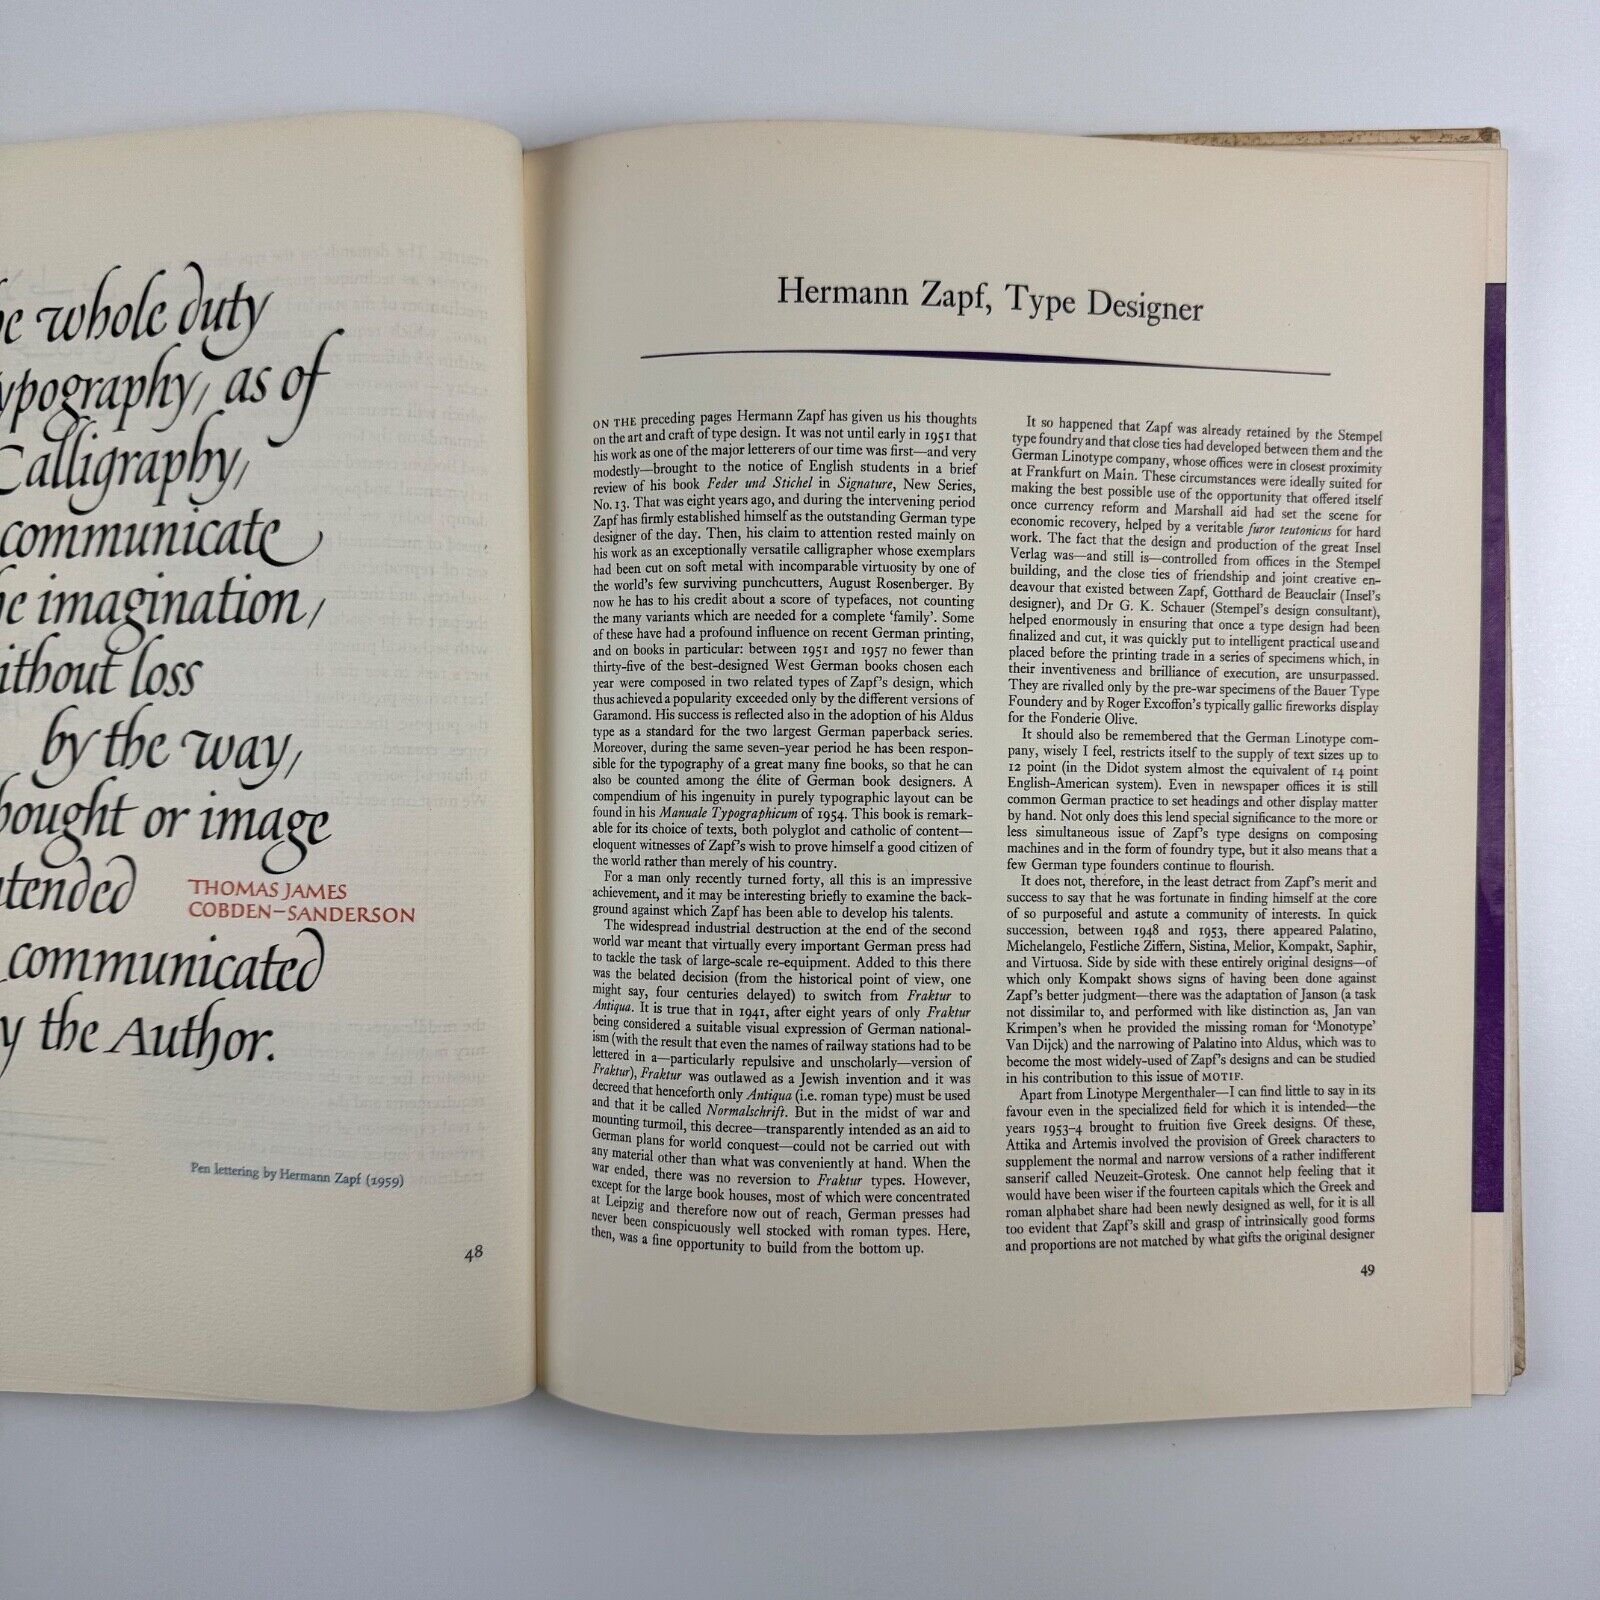 whole duty
typography, as of
Calligraphy,
communicate
imagination,
without loss
by the way,
thought or image
intended
THOMAS JAMES
COBDEN-SANDERSON
communicated
by the Author.
Pen lettering by Hermann Zapf (1959)
48
Hermann Zapf, Type Designer
ON THE preceding pages Hermann Zapf has given us his thoughts
on the art and craft of type design. It was not until early in 1951 that
his work as one of the major letterers of our time was first—and very
modestly—brought to the notice of English students in a brief
review of his book Feder und Stichel in Signature, New Series,
No. 13. That was eight years ago, and during the intervening period
Zapf has firmly established himself as the outstanding German type
designer of the day. Then, his claim to attention rested mainly on
his work as an exceptionally versatile calligrapher whose exemplars
had been cut on soft metal with incomparable virtuosity by one of
the world's few surviving punchcutters, August Rosenberger. By
now he has to his credit about a score of typefaces, not counting
the many variants which are needed for a complete 'family'. Some
of these have had a profound influence on recent German printing,
and on books in particular: between 1951 and 1957 no fewer than
thirty-five of the best-designed West German books chosen each
year were composed in two related types of Zapf's design, which
thus achieved a popularity exceeded only by the different versions of
Garamond. His success is reflected also in the adoption of his Aldus
type as a standard for the two largest German paperback series.
Moreover, during the same seven-year period he has been respon-
sible for the typography of a great many fine books, so that he can
also be counted among the élite of German book designers. A
compendium of his ingenuity in purely typographic layout can be
found in his Manuale Typographicum of 1954. This book is remark-
able for its choice of texts, both polyglot and catholic of content—
eloquent witnesses of Zapf's wish to prove himself a good citizen of
the world rather than merely of his country.
For a man only recently turned forty, all this is an impressive
achievement, and it may be interesting briefly to examine the back-
ground against which Zapf has been able to develop his talents.
The widespread industrial destruction at the end of the second
world war meant that virtually every important German press had
to tackle the task of large-scale re-equipment. Added to this there
was the belated decision (from the historical point of view, one
might say, four centuries delayed) to switch from Fraktur to
Antiqua. It is true that in 1941, after eight years of only Fraktur
being considered a suitable visual expression of German national-
ism (with the result that even the names of railway stations had to be
lettered in a—particularly repulsive and unscholarly—version of
Fraktur), Fraktur was outlawed as a Jewish invention and it was
decreed that henceforth only Antiqua (i.e. roman type) must be used
and that it be called Normalschrift. But in the midst of war and
mounting turmoil, this decree—transparently intended as an aid to
German plans for world conquest—could not be carried out with
any material other than what was conveniently at hand. When the
war ended, there was no reversion to Fraktur types. However,
except for the large book houses, most of which were concentrated
at Leipzig and therefore now out of reach, German presses had
never been conspicuously well stocked with roman types. Here,
then, was a fine opportunity to build from the bottom up.
It so happened that Zapf was already retained by the Stempel
type foundry and that close ties had developed between them and the
German Linotype company, whose offices were in closest proximity
at Frankfurt on Main. These circumstances were ideally suited for
making the best possible use of the opportunity that offered itself
once currency reform and Marshall aid had set the scene for
economic recovery, helped by a veritable furor teutonicus for hard
work. The fact that the design and production of the great Insel
Verlag was—and still is—controlled from offices in the Stempel
building, and the close ties of friendship and joint creative en-
deavour that existed between Zapf, Gotthard de Beauclair (Insel's
designer), and Dr G. K. Schauer (Stempel's design consultant),
helped enormously in ensuring that once a type design had been
finalized and cut, it was quickly put to intelligent practical use and
placed before the printing trade in a series of specimens which, in
their inventiveness and brilliance of execution, are unsurpassed.
They are rivalled only by the pre-war specimens of the Bauer Type
Foundery and by Roger Excoffon's typically gallic fireworks display
for the Fonderie Olive.
It should also be remembered that the German Linotype com-
pany, wisely I feel, restricts itself to the supply of text sizes up to
12 point (in the Didot system almost the equivalent of 14 point
English-American system). Even in newspaper offices it is still
common German practice to set headings and other display matter
by hand. Not only does this lend special significance to the more or
less simultaneous issue of Zapf's type designs on composing
machines and in the form of foundry type, but it also means that a
few German type founders continue to flourish.
It does not, therefore, in the least detract from Zapf's merit and
success to say that he was fortunate in finding himself at the core
of so purposeful and astute a community of interests. In quick
succession, between 1948 and 1953, there appeared Palatino,
Michelangelo, Festliche Ziffern, Sistina, Melior, Kompakt, Saphir,
and Virtuosa. Side by side with these entirely original designs—of
which only Kompakt shows signs of having been done against
Zapf's better judgment—there was the adaptation of Janson (a task
not dissimilar to, and performed with like distinction as, Jan van
Krimpen's when he provided the missing roman for 'Monotype'
Van Dijck) and the narrowing of Palatino into Aldus, which was to
become the most widely-used of Zapf's designs and can be studied
in his contribution to this issue of MOTIF.
Apart from Linotype Mergenthaler—I can find little to say in its
favour even in the specialized field for which it is intended—the
years 1953-4 brought to fruition five Greek designs. Of these,
Attika and Artemis involved the provision of Greek characters to
supplement the normal and narrow versions of a rather indifferent
sanserif called Neuzeit-Grotesk. One cannot help feeling that it
would have been wiser if the fourteen capitals which the Greek and
roman alphabet share had been newly designed as well, for it is all
too evident that Zapf's skill and grasp of intrinsically good forms
and proportions are not matched by what gifts the original designer
49